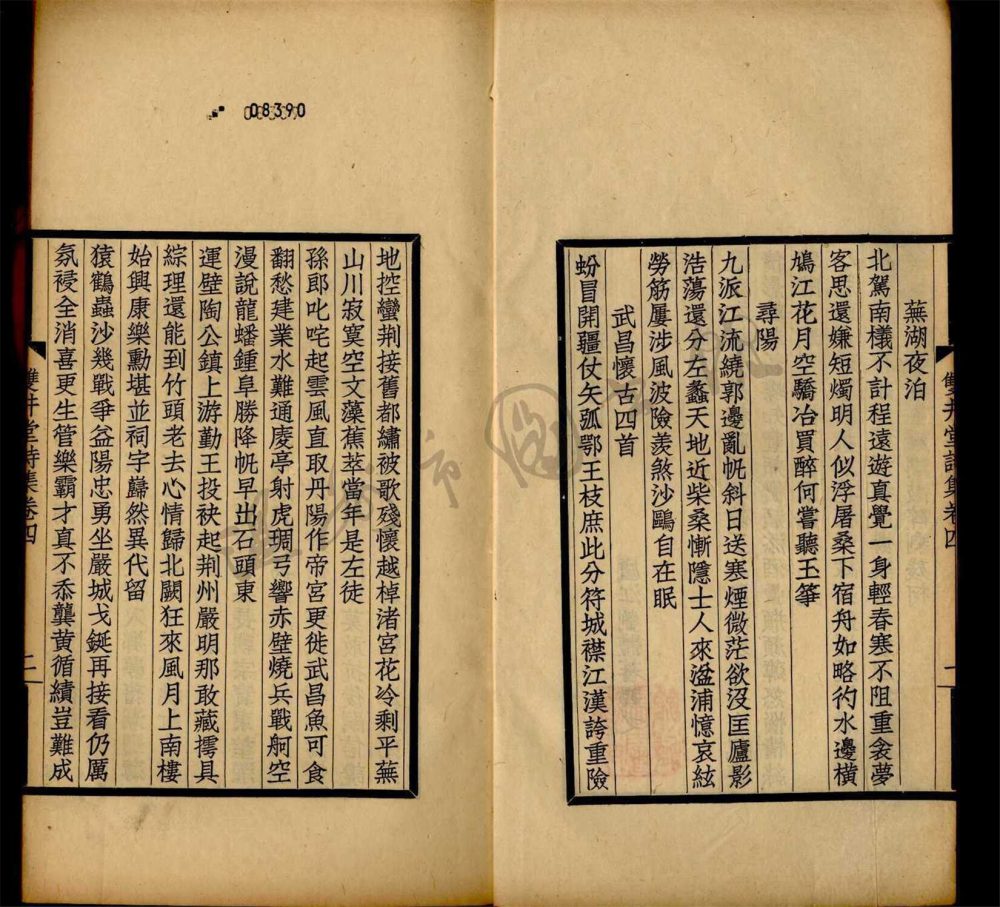 蕪湖夜泊
北駕南檥不計程遠遊真覺一身輕春寒不阻重衾夢
客思還嫌短燭明人似浮屠桑下宿舟如略彴水邊橫
鳩江花月空驕冶買醉何嘗聽玉箏
尋陽
九派江流繞郭邊亂帆斜日送寒煙微茫欲沒匡廬影
浩蕩還分左蠡天地近柴桑慚隱士人來湓浦憶哀絃
勞筋屢涉風波險羨煞沙鷗自在眠
武昌懷古四首
蚡冒開疆仗矢弧鄂王枝庶此分符城襟江漢誇重險
雙井堂詩集卷四
一
08390
地控蠻荆接舊都繡被歌殘懷越棹渚宮花冷剩平蕪
山川寂寞空文藻蕉萃當年是左徒
孫郎叱咤起雲風直取丹陽作帝宮更徙武昌魚可食
翻愁建業水難通慶亭射虎琱弓響赤壁燒兵戰舸空
漫說龍蟠鍾阜勝降帆早出石頭東
運甓陶公鎮上游勤王投袂起荆州嚴明那敢藏摴具
綜理還能到竹頭老去心情歸北闕狂來風月上南樓
始興康樂勳堪並祠宇巋然異代留
猿鶴蟲沙幾戰爭益陽忠勇坐嚴城戈鋋再接看仍厲
氛祲全消喜更生管樂霸才真不忝龔黃循績豈難成
雙井堂詩集卷四
二